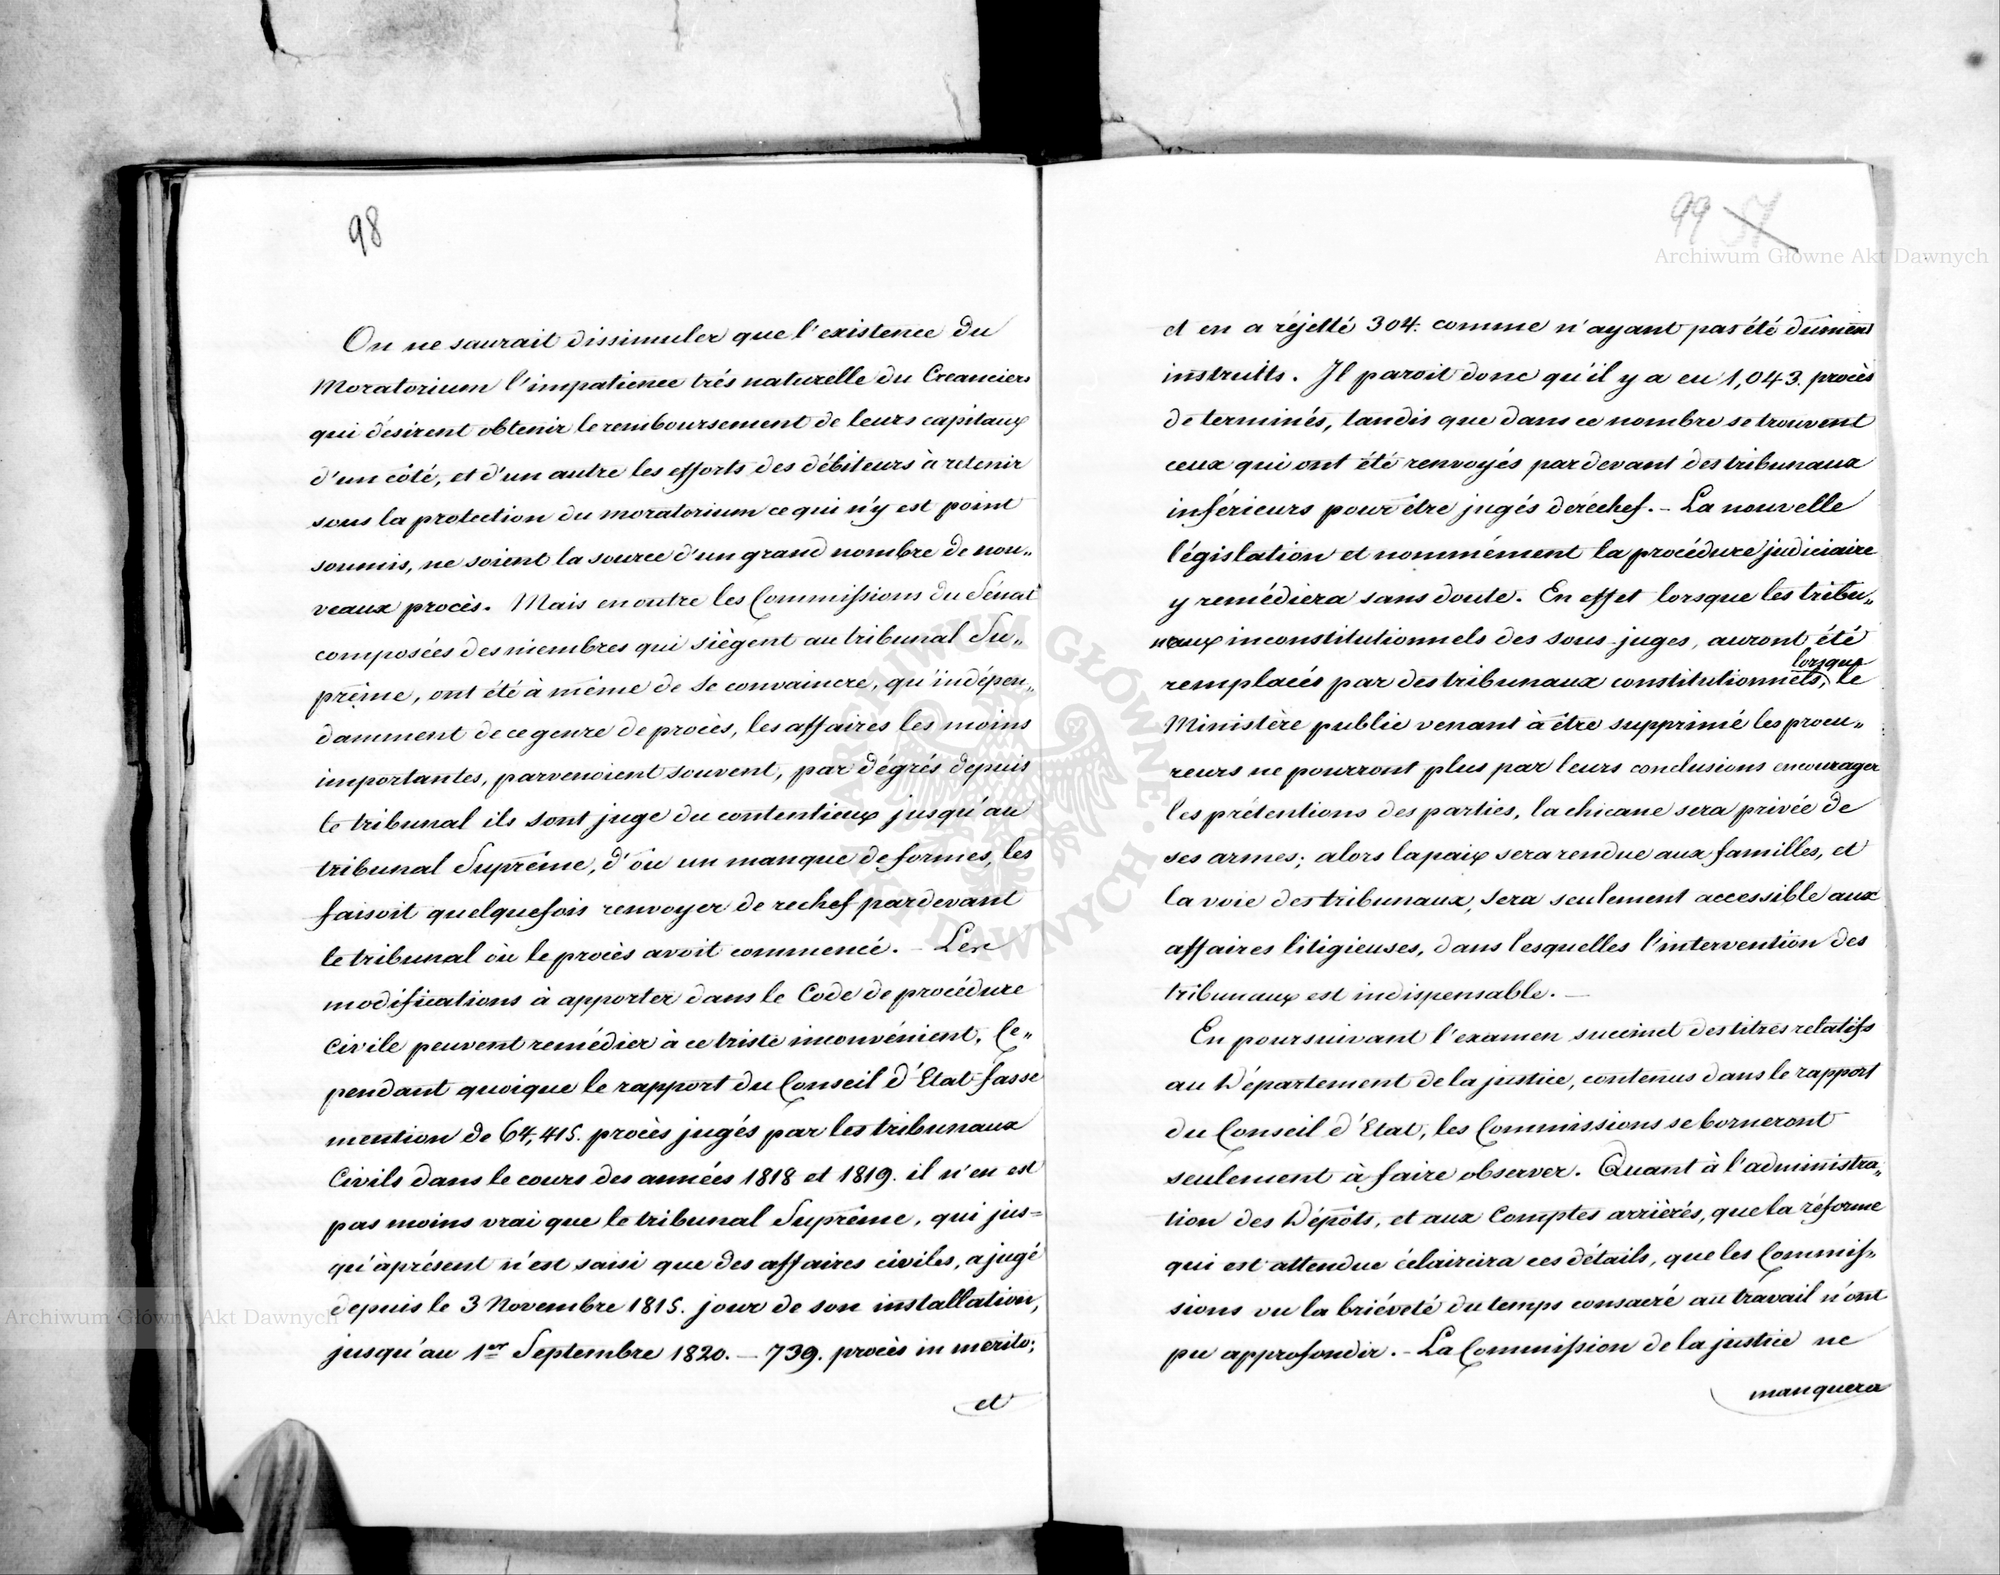 98
On ne saurait dissimuler que l'existence du
Moratorium l'impatience trés naturelle du Creanciers
qui désirent obtenir le remboursement de leurs capitaux
d'un côté, et d'un autre les efforts des débiteurs à retenir
sous la protection du moratorium ce qui n'y est point
soumis, ne soient la source d'un grand nombre de nou„
veaux procès. Mais en outre les Commissions du Sénat
composées des membres qui siègent au tribunal Su„
prême, ont été à même de se convaincre, qu'indépen„
damment de ce genre de procès, les affaires les moins
importantes, parvenoient souvent, par dégrés depuis
le tribunal ils sont juge du contentieux jusqu'au
tribunal Suprême, d'où un manque de formes, les
faisoit quelquefois renvoyer de rechef pardevant
le tribunal où le procès avoit commencé. – Les
modifications à apporter dans le Code de procédure
Civile peuvent remédier à ce triste inconvénient. Ce„
pendant quoique le rapport du Conseil d'Etat fasse
mention de 64,415. procès jugés par les tribunaux
Civils dans le cours des années 1818 et 1819. il n'en est
pas moins vrai que le tribunal Suprême, qui jus=
qu'àprésent n'est saisi que des affaires civiles, a jugé
depuis le 3 Novembre 1815. jour de son installation,
jusqu'au 1er Septembre 1820. – 739. procès in merito;
et
99 57
et en a réjetté 304. comme n'ayant pas été dûment
instruits. Il paroit donc qu'il y a eu 1,043. procès
de terminés, tandis que dans ce nombre se trouvent
ceux qui ont été renvoyés pardevant des tribunaux
inférieurs pour être jugés deréchef. – La nouvelle
législation et nommément la procédure judiciaire
y remédiera sans doute. En effet lorsque les tribu„
naux inconstitutionnels des sous-juges, auront été
lorsque
remplacés par des tribunaux constitutionnels, le
Ministère public venant à être supprimé les procu„
reurs ne pourront plus par leurs conclusions encourager
les prétentions des parties, la chicane sera privée de
ses armes; alors la paix sera rendue aux familles, et
la voie des tribunaux, sera seulement accessible aux
affaires litigieuses, dans lesquelles l'intervention des
tribunaux est indispensable. –
En poursuivant l'examen succinct des titres relatifs
au Département de la justice, contenus dans le rapport
du Conseil d'Etat, les Commissions se borneront
seulement à faire observer. Quant à l'administra„
tion des Dépôts, et aux Comptes arriérés, que la réforme
qui est attendue éclaircira ces détails, que les Commis„
sions vu la briéveté du temps consacré au travail n'ont
pu approfondir. – La Commission de la justice ne
manquera
Archiwum Główne Akt Dawnych
Archiwum Główne Akt Dawnych
ARCHIWUM GŁÓWNE AKT DAWNYCH